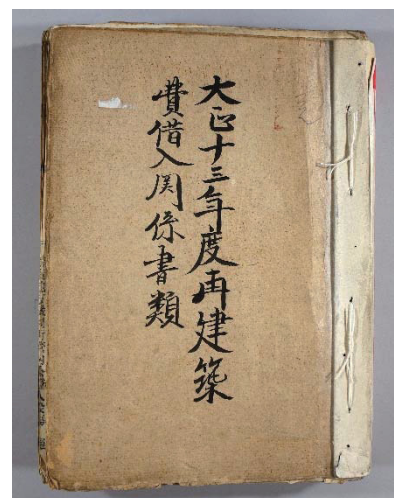 大正十三年度再建築
費借入関係書類